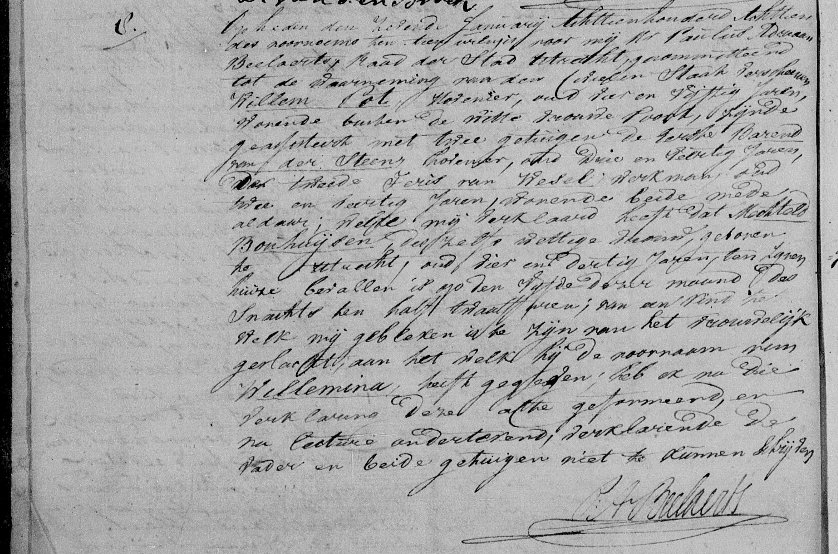 8.
Op heden den Zevende Januarij Achttienhonderd Achttien
des voormiddags ten tien uren voor mij Mr Paulus
Beelaerts, Raad der Stad Utrecht, gecommitteerd
tot de Waarneming van den Civielen Staat verscheenen
Willem Pot, Hovenier, oud vier en Vijftig Jaren,
Wonende buiten de Witte Vrouwe Poort, Zijnde
geassisteerd met twee getuigen de Eerste Barend
van der Steen, hovenier, oud Drie en Jaren,
De tweede van Wesel, Werkman, oud
twee en dertig Jaren, Wonende beide mede
aldaar; Welke mij Verklaard heeft dat Mechteld
deszelfs Wettige geboren
te Utrecht, oud vier en dertig Jaren, ten Zijnen
huize bevallen is op den Vijfde dezer maand des
Snachts ten half twaalf uren; van een Kind het
Welk mij gebleken is te Zijn van het Vrouwelijk
geslacht, aan het Welk hij de voornaam van
Willemina, heeft gegeven; heb ik na die
Verklaring deze akte geformeerd, en
na lecture onderteekend, Verklarende de
Vader en beide getuigen niet te kunnen Schrijven
Beelaerts